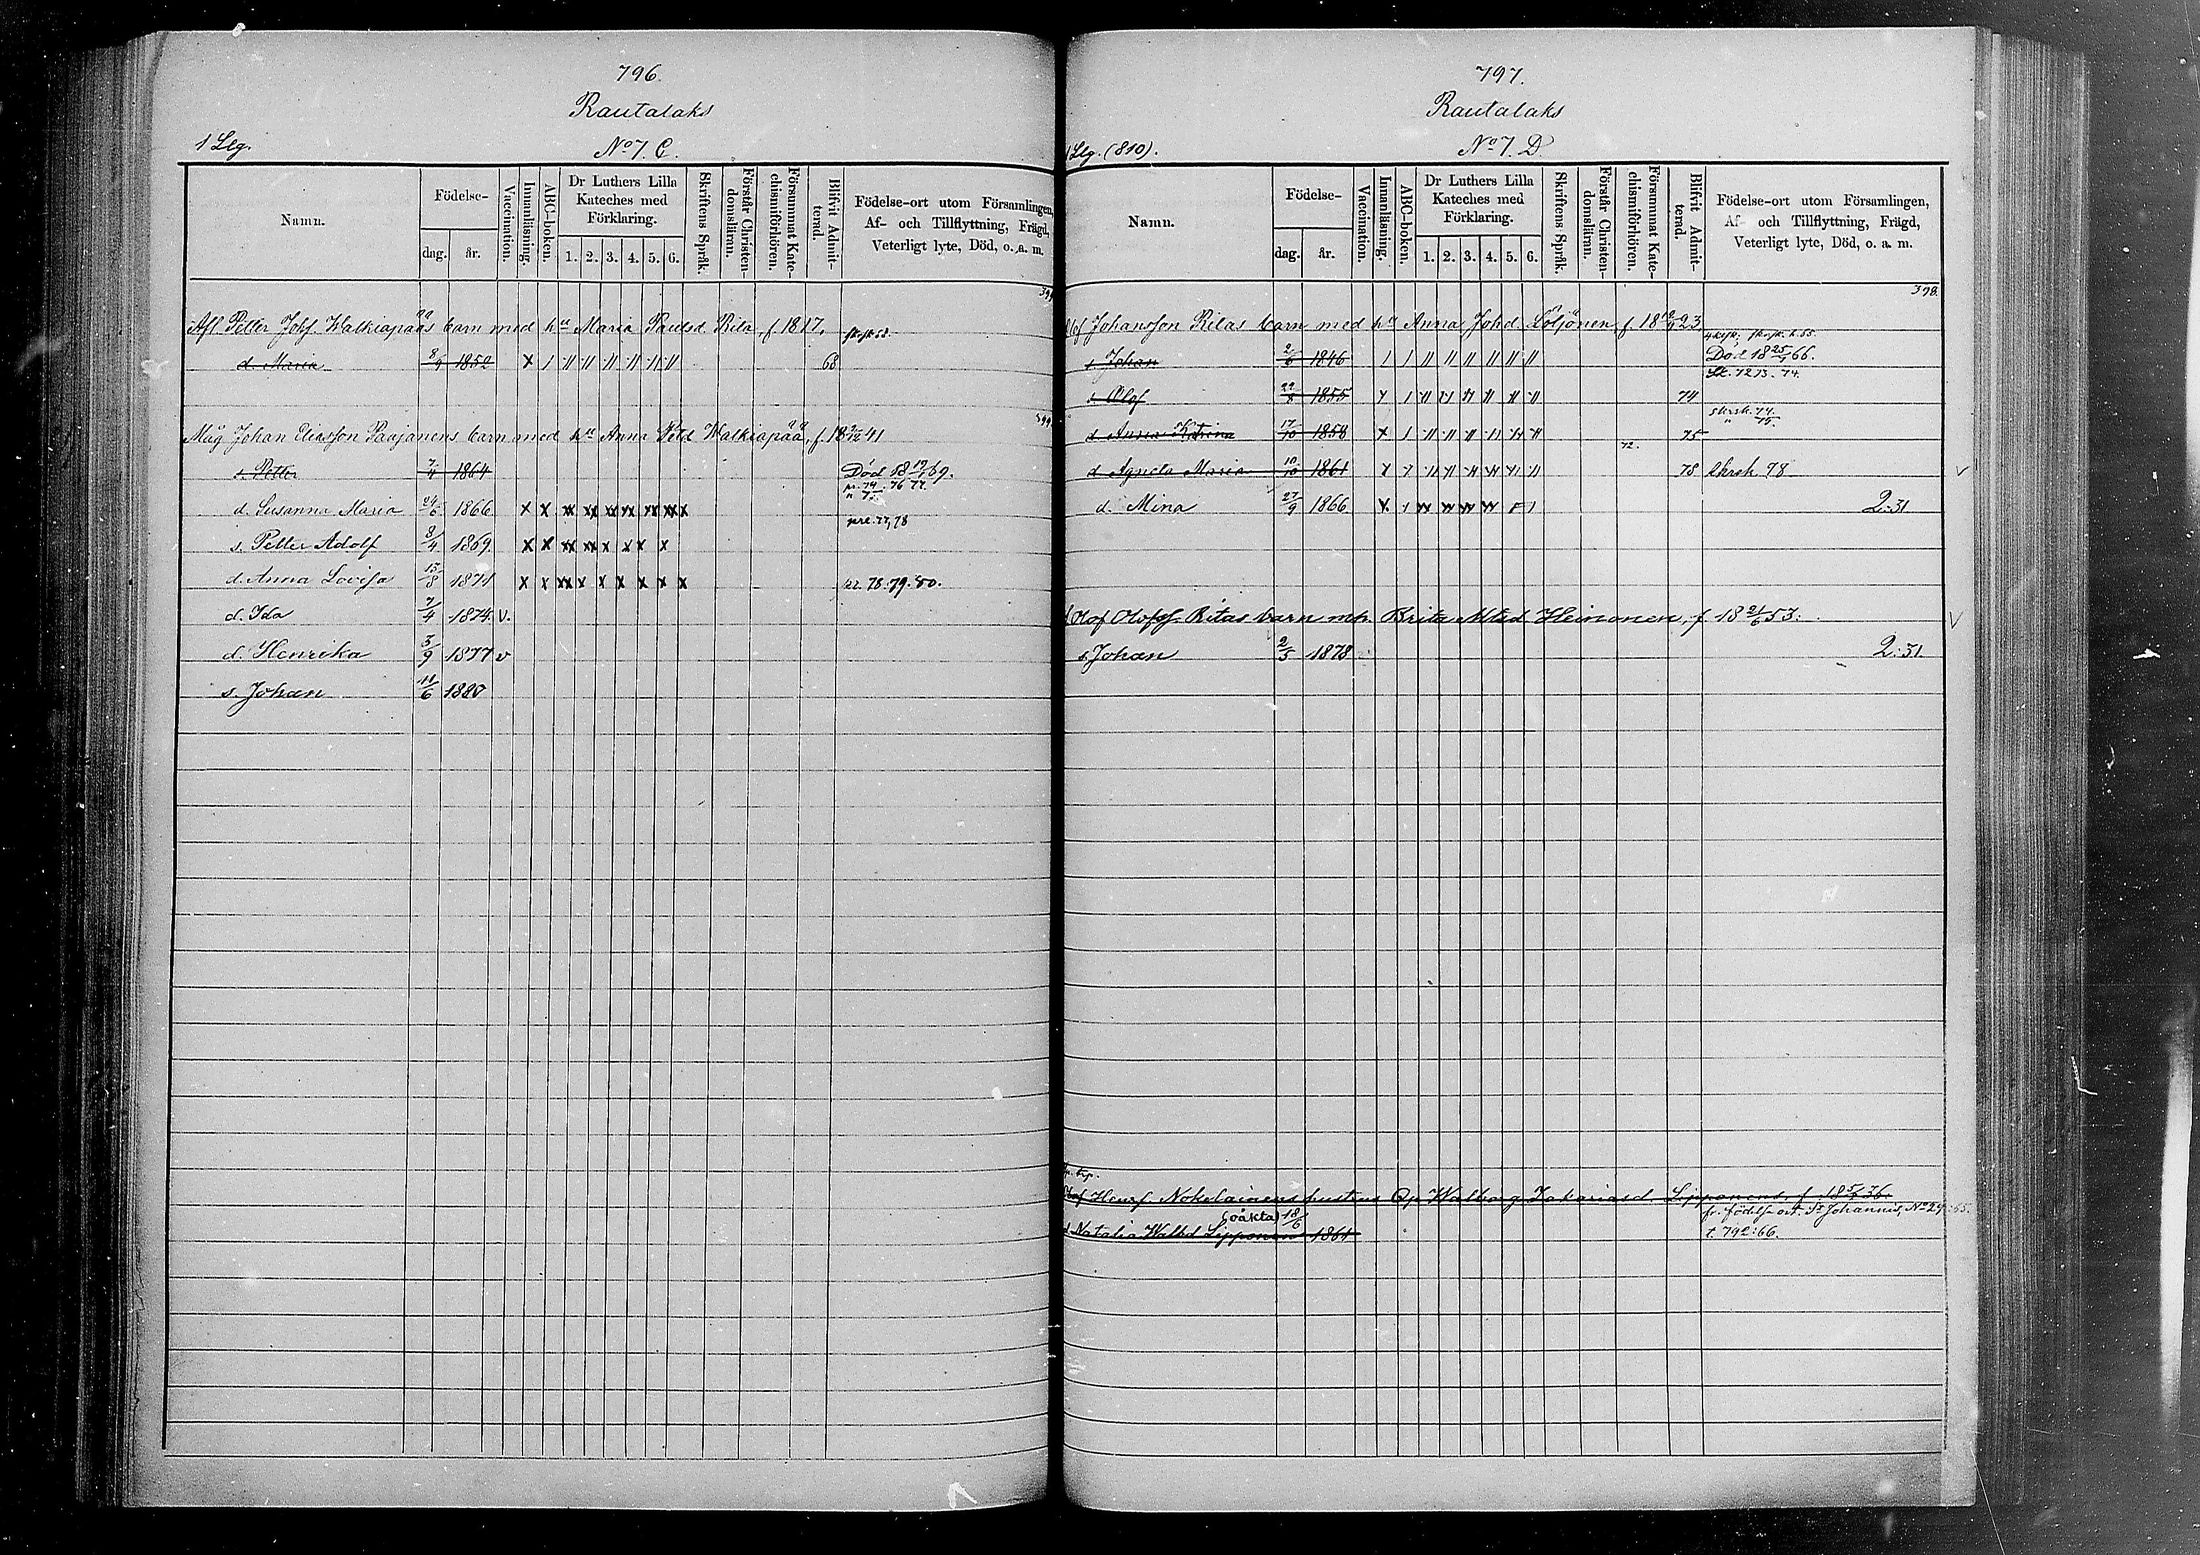 796.
Rautalaks
1 Slg.
No 7. C.
Namn.
Födelse-
dag.
år.
Vaccination.
Innanläsning.
ABC-boken.
Dr Luthers Lilla
Kateches med
Förklaring.
1. 2. 3. 4. 5. 6.
Skriftens Språk.
Förstår Christen-
domsläran.
Försummat Kate-
chismiförhören.
Blifvit Admit-
terad.
Födelse-ort utom Församlingen,
Af- och Tillflyttning, Frägd,
Veterligt lyte, Död, o. a. m.
Afl Petter Johs. Walkiapääs barn med hu Maria Paulsd Rita, f. 1817.
d. Maria 8/9 1852 x 1 11 11 11 11 11 11 68
Måg Johan Eliasson Paajanens barn med hu Anna Petd Walkiapää, f. 18 41
s. Petter 7/4 1864 Död 18 69.
d. Susanna Maria 24/6 1866 x x xx xx xx xx xx xxx
s. Petter Adolf 8/4 1869. x x xx xx x x x x
d. Anna Lovisa 13/8 1871 x x xx x x x x x 78. 79. 80.
d. Ida 7/4 1874. v.
d. Henrika 3/9 1877 v
s. Johan 11/6 1880
797.
Rautalaks
Slg. (810).
No 7. D.
Namn.
Födelse-
dag.
år.
Vaccination.
Innanläsning.
ABC-boken.
Dr Luthers Lilla
Kateches med
Förklaring.
1. 2. 3. 4. 5. 6.
Skriftens Språk.
Förstår Christen-
domsläran.
Försummat Kate-
chismiförhören.
Blifvit Admit-
terad.
Födelse-ort utom Församlingen,
Af- och Tillflyttning, Frägd,
Veterligt lyte, Död, o. a. m.
398.
Olof Johansson Ritas barn med hu Anna Johd f. 18 23
s. Johan 2/6 1846 1 1 11 11 11 11 11 11 Död 18 66.
s. Olof 22/8 1855 74
d. Anna Katrina 17/10 1858 x 1 75
72.
d. Agneta Maria 10/10 1861 78 Skrsk. 78
d. Mina 27/9 1866 2:31
Olof Olofss. Ritas barn m. h. Brita Mtsd Heinonen, f. 18 21/6 53.
s. Johan 2/3 1878 2:31.
Olof Henrs. Nokelainens hustru Walborg Zakariasd Lipponens, f. 18 36.
fr. födelse ort. St Johannis, No 29:65.
(oäkta) 18/6
d. Natalia Walbd Lipponens 1861
t. 792:66.